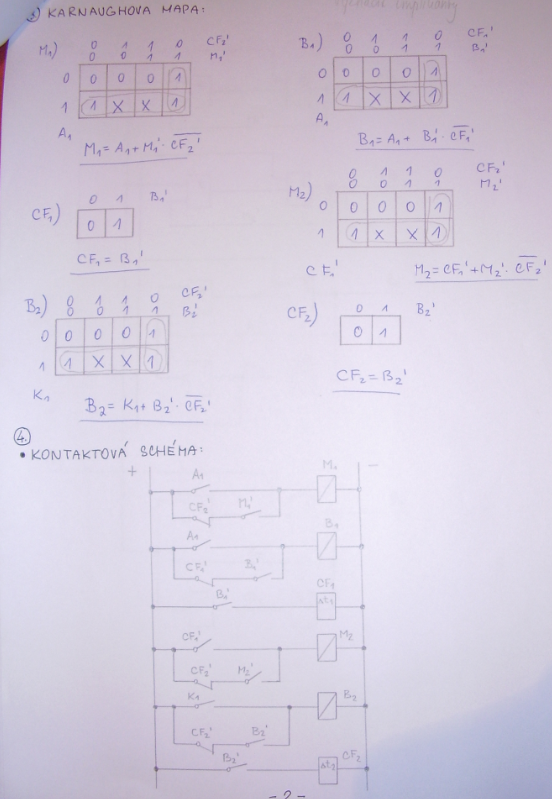 3) KARNAUGHOVA MAPA:
M1) 0 1 1 0 CF2'
0 0 1 1 M1'
0 0 0 0 1
1 1 X X 1
A1
M1 = A1 + M1' · \overline{CF2'}
B1) 0 1 1 0 CF1'
0 0 1 1 B1'
0 0 0 0 1
1 1 X X 1
A1
B1 = A1 + B1' · \overline{CF1'}
CF1) 0 1 B1'
0 1
CF1 = B1'
M2) 0 1 1 0 CF2'
0 0 1 1 M2'
0 0 0 0 1
1 1 X X 1
CF1'
M2 = CF1' + M2' · \overline{CF2'}
B2) 0 1 1 0 CF2'
0 0 1 1 B2'
0 0 0 0 1
1 1 X X 1
K1
B2 = K1 + B2' · \overline{CF2'}
CF2) 0 1 B2'
0 1
CF2 = B2'
4.
• KONTAKTOVÁ SCHÉMA:
+ −
A1 M1
CF2' M1'
A1 B1
CF1' B1'
B1' CF1
st1
CF1' M2
CF2' M2'
K1 B2
CF2' B2'
B2' CF2
st2
- 2 -